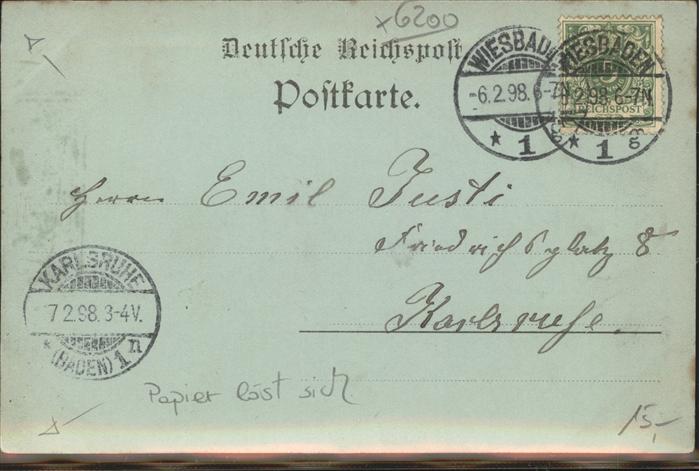 x6200
Deutsche Reichspost
Postkarte.
WIESBADEN
-6.2.98.6-7N
* 1 g
WIESBADEN
6.2.98.6-7N
* 1 g
REICHSPOST
Herrn Emil Justi
Friedrichsplatz 8
Karlsruhe.
KARLSRUHE
7.2.98.3-4V.
* (BADEN) 1 n
Papier löst sich
15,-